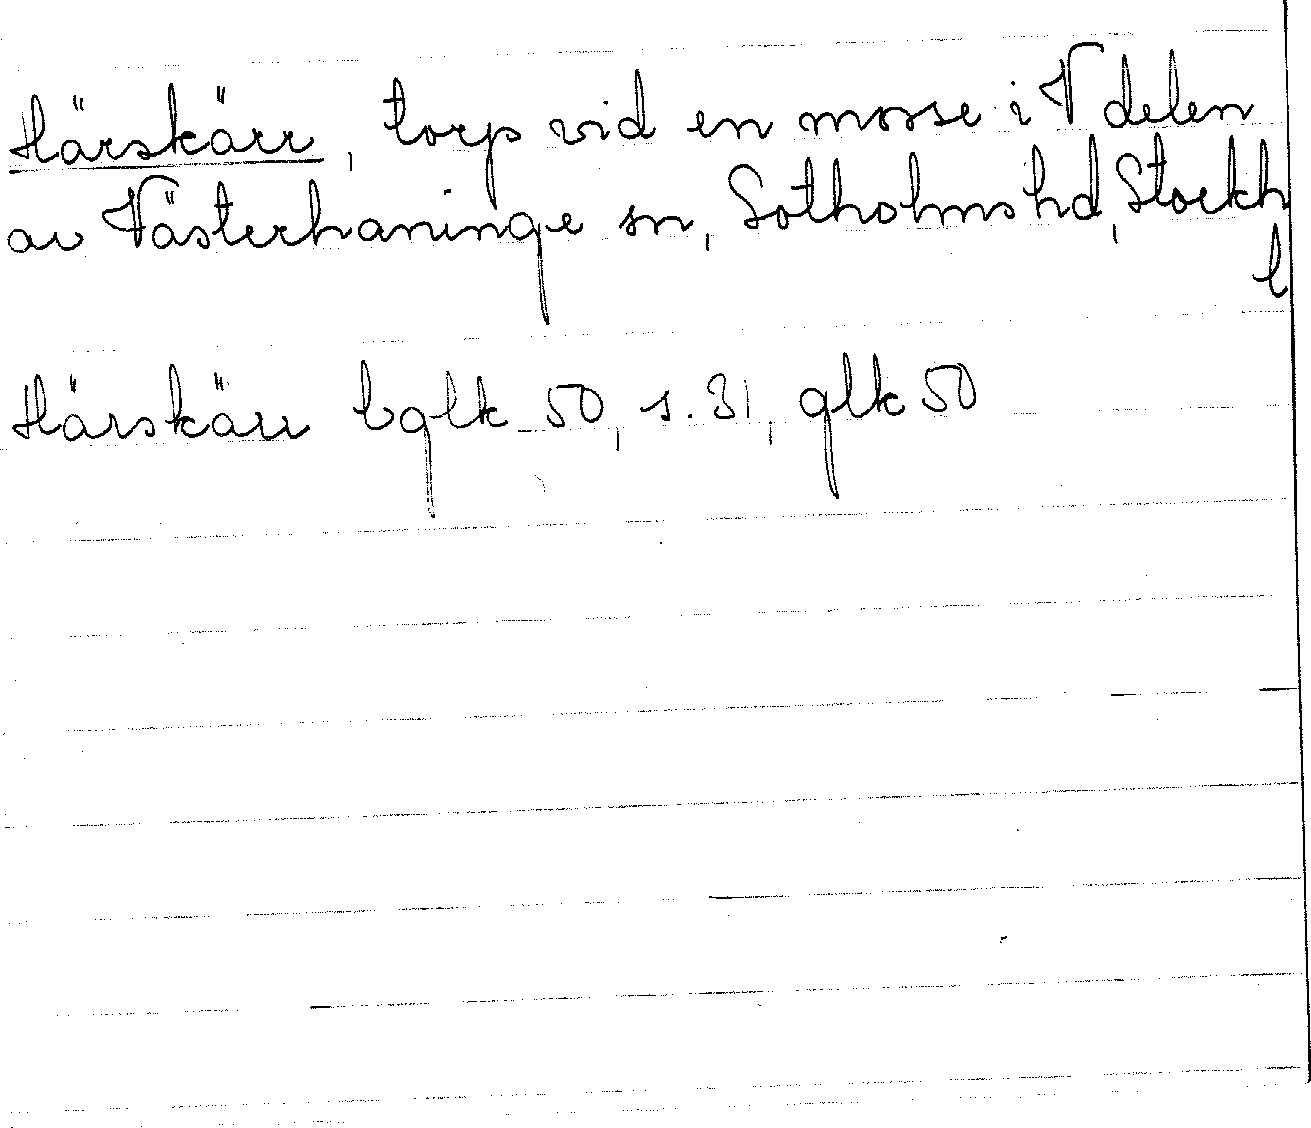 Härskärr, torp vid en mosse i V delen
av Västerhaninge sn, Sotholms hd, Stockh
l
Härskärr bglk 50, s. 31, glk 50